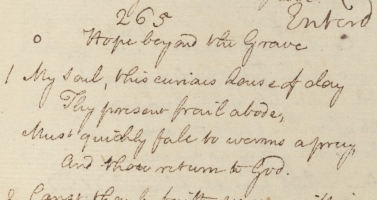 265 Enterd
0 Hope beyond the Grave
1 My Soul, this curious house of clay
Thy present frail abode,
Must quickly fale to worms a prey,
And thou return to God.
2 Canst thou